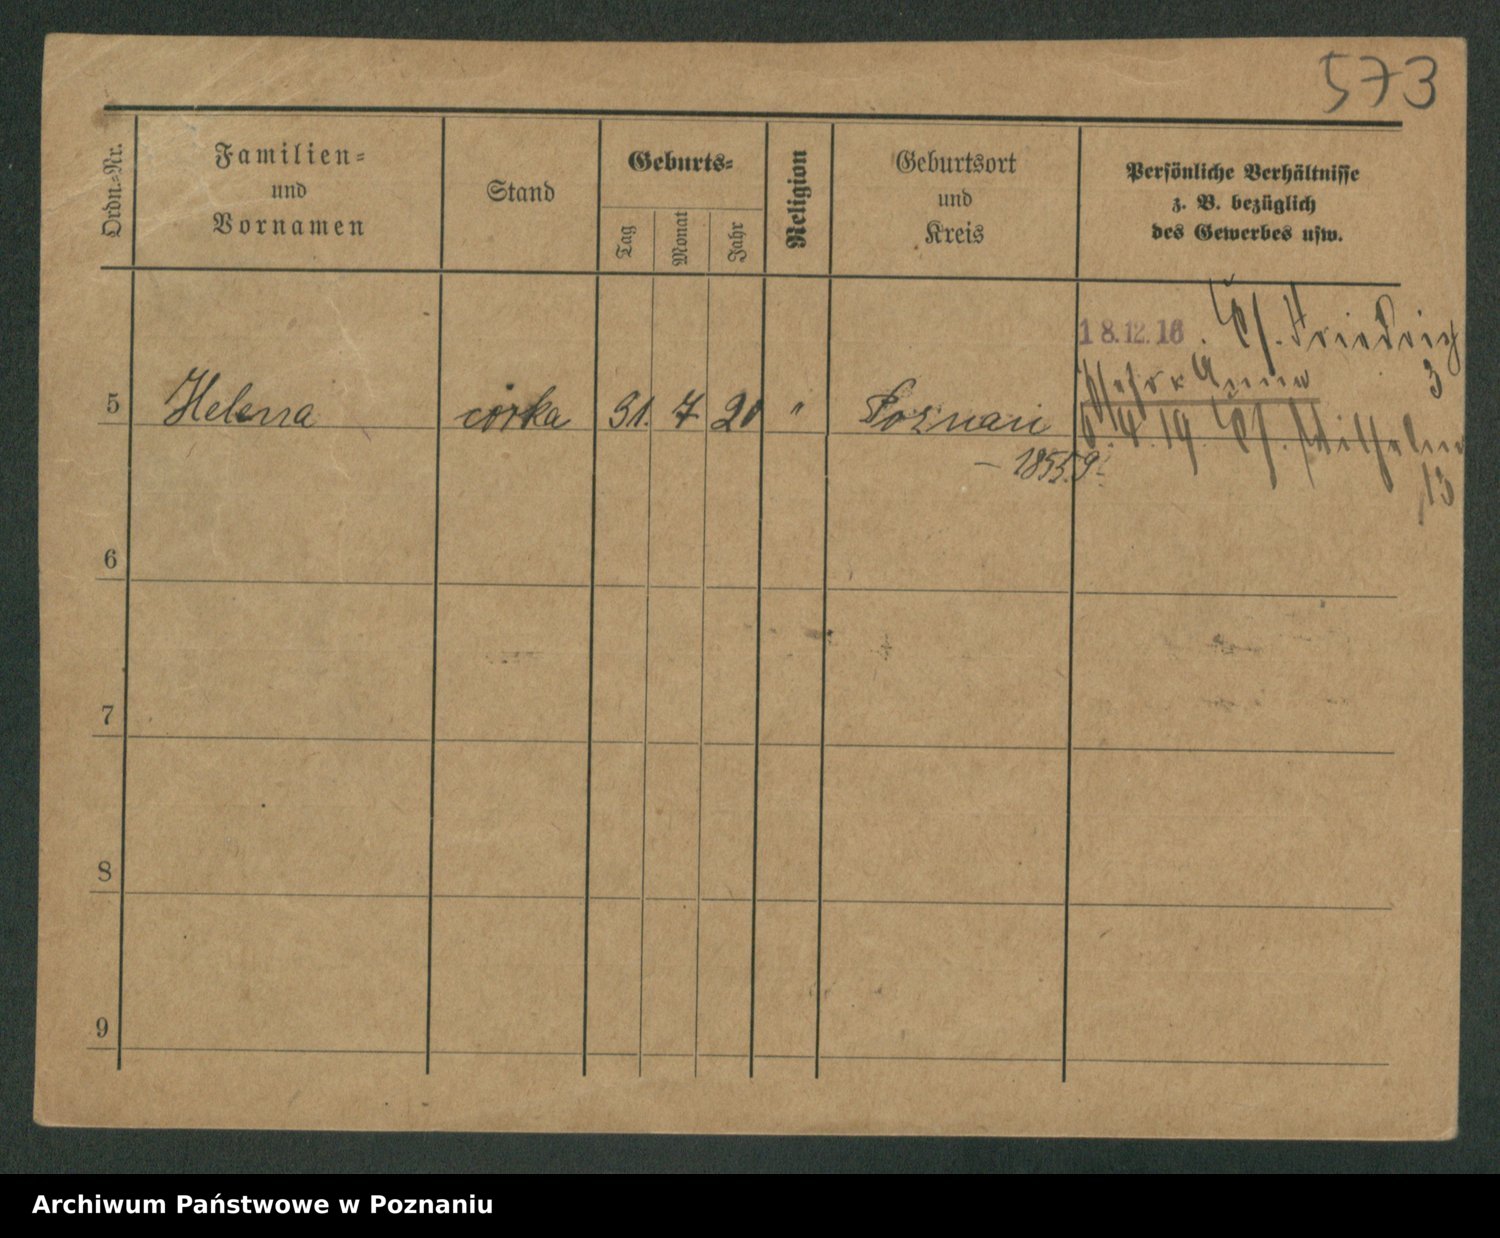 573
Ordn.-Nr.
Familien-
und
Vornamen
Stand
Geburts-
Tag
Monat
Jahr
Religion
Geburtsort
und
Kreis
Persönliche Verhältnisse
z. B. bezüglich
des Gewerbes usw.
18.12.16. Friedrich
3
Anna
5 Helena córka 31. 7 20 " Poznań
6.4.19. Wilhelm
13
6
7
8
9
Archiwum Państwowe w Poznaniu